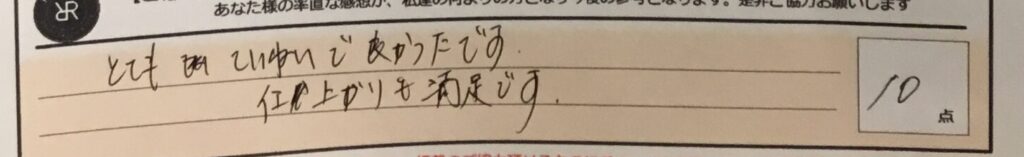 あなた様の率直な感想が、私達の何よりの力となり今後の参考となります。是非ご協力お願いします
とても ていねいで良かったです.
仕上がりも満足です.
10
点